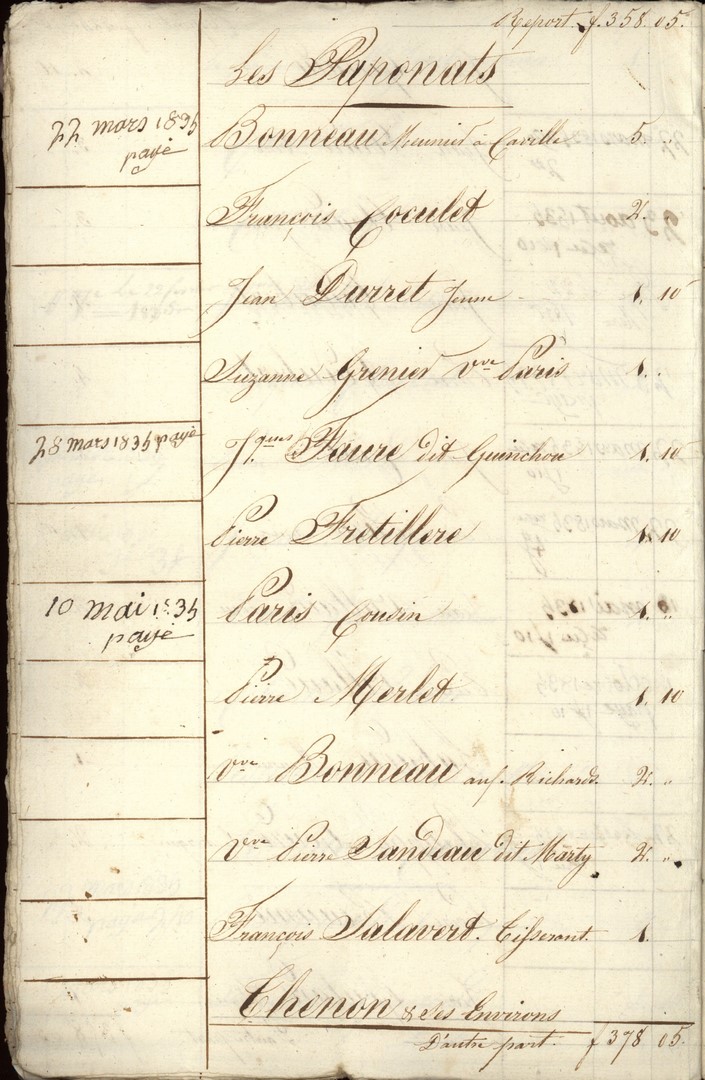 Report. f. 358. 05.
Les Paponats
22 mars 1834 payé Bonneau Meunier à Caville 5. "
François Coculet 2.
Jean Durret Jeune 1. 10
Suzanne Grenier Vve Paris 1. "
28 mars 1834 payé Jques Faure dit Guinchou 1. 10
Pierre Fretillere 1. 10
10 mai 1834 payé Paris Cousin 1. "
Pierre Merlet. 1. 10
Vve Bonneau aux Richards. 2. "
Vve Pierre Sandeau dit Marty 2. "
François Salavert. Tisserant. 1.
Thenon & Ses Environs
D'autre part. f 378 05.